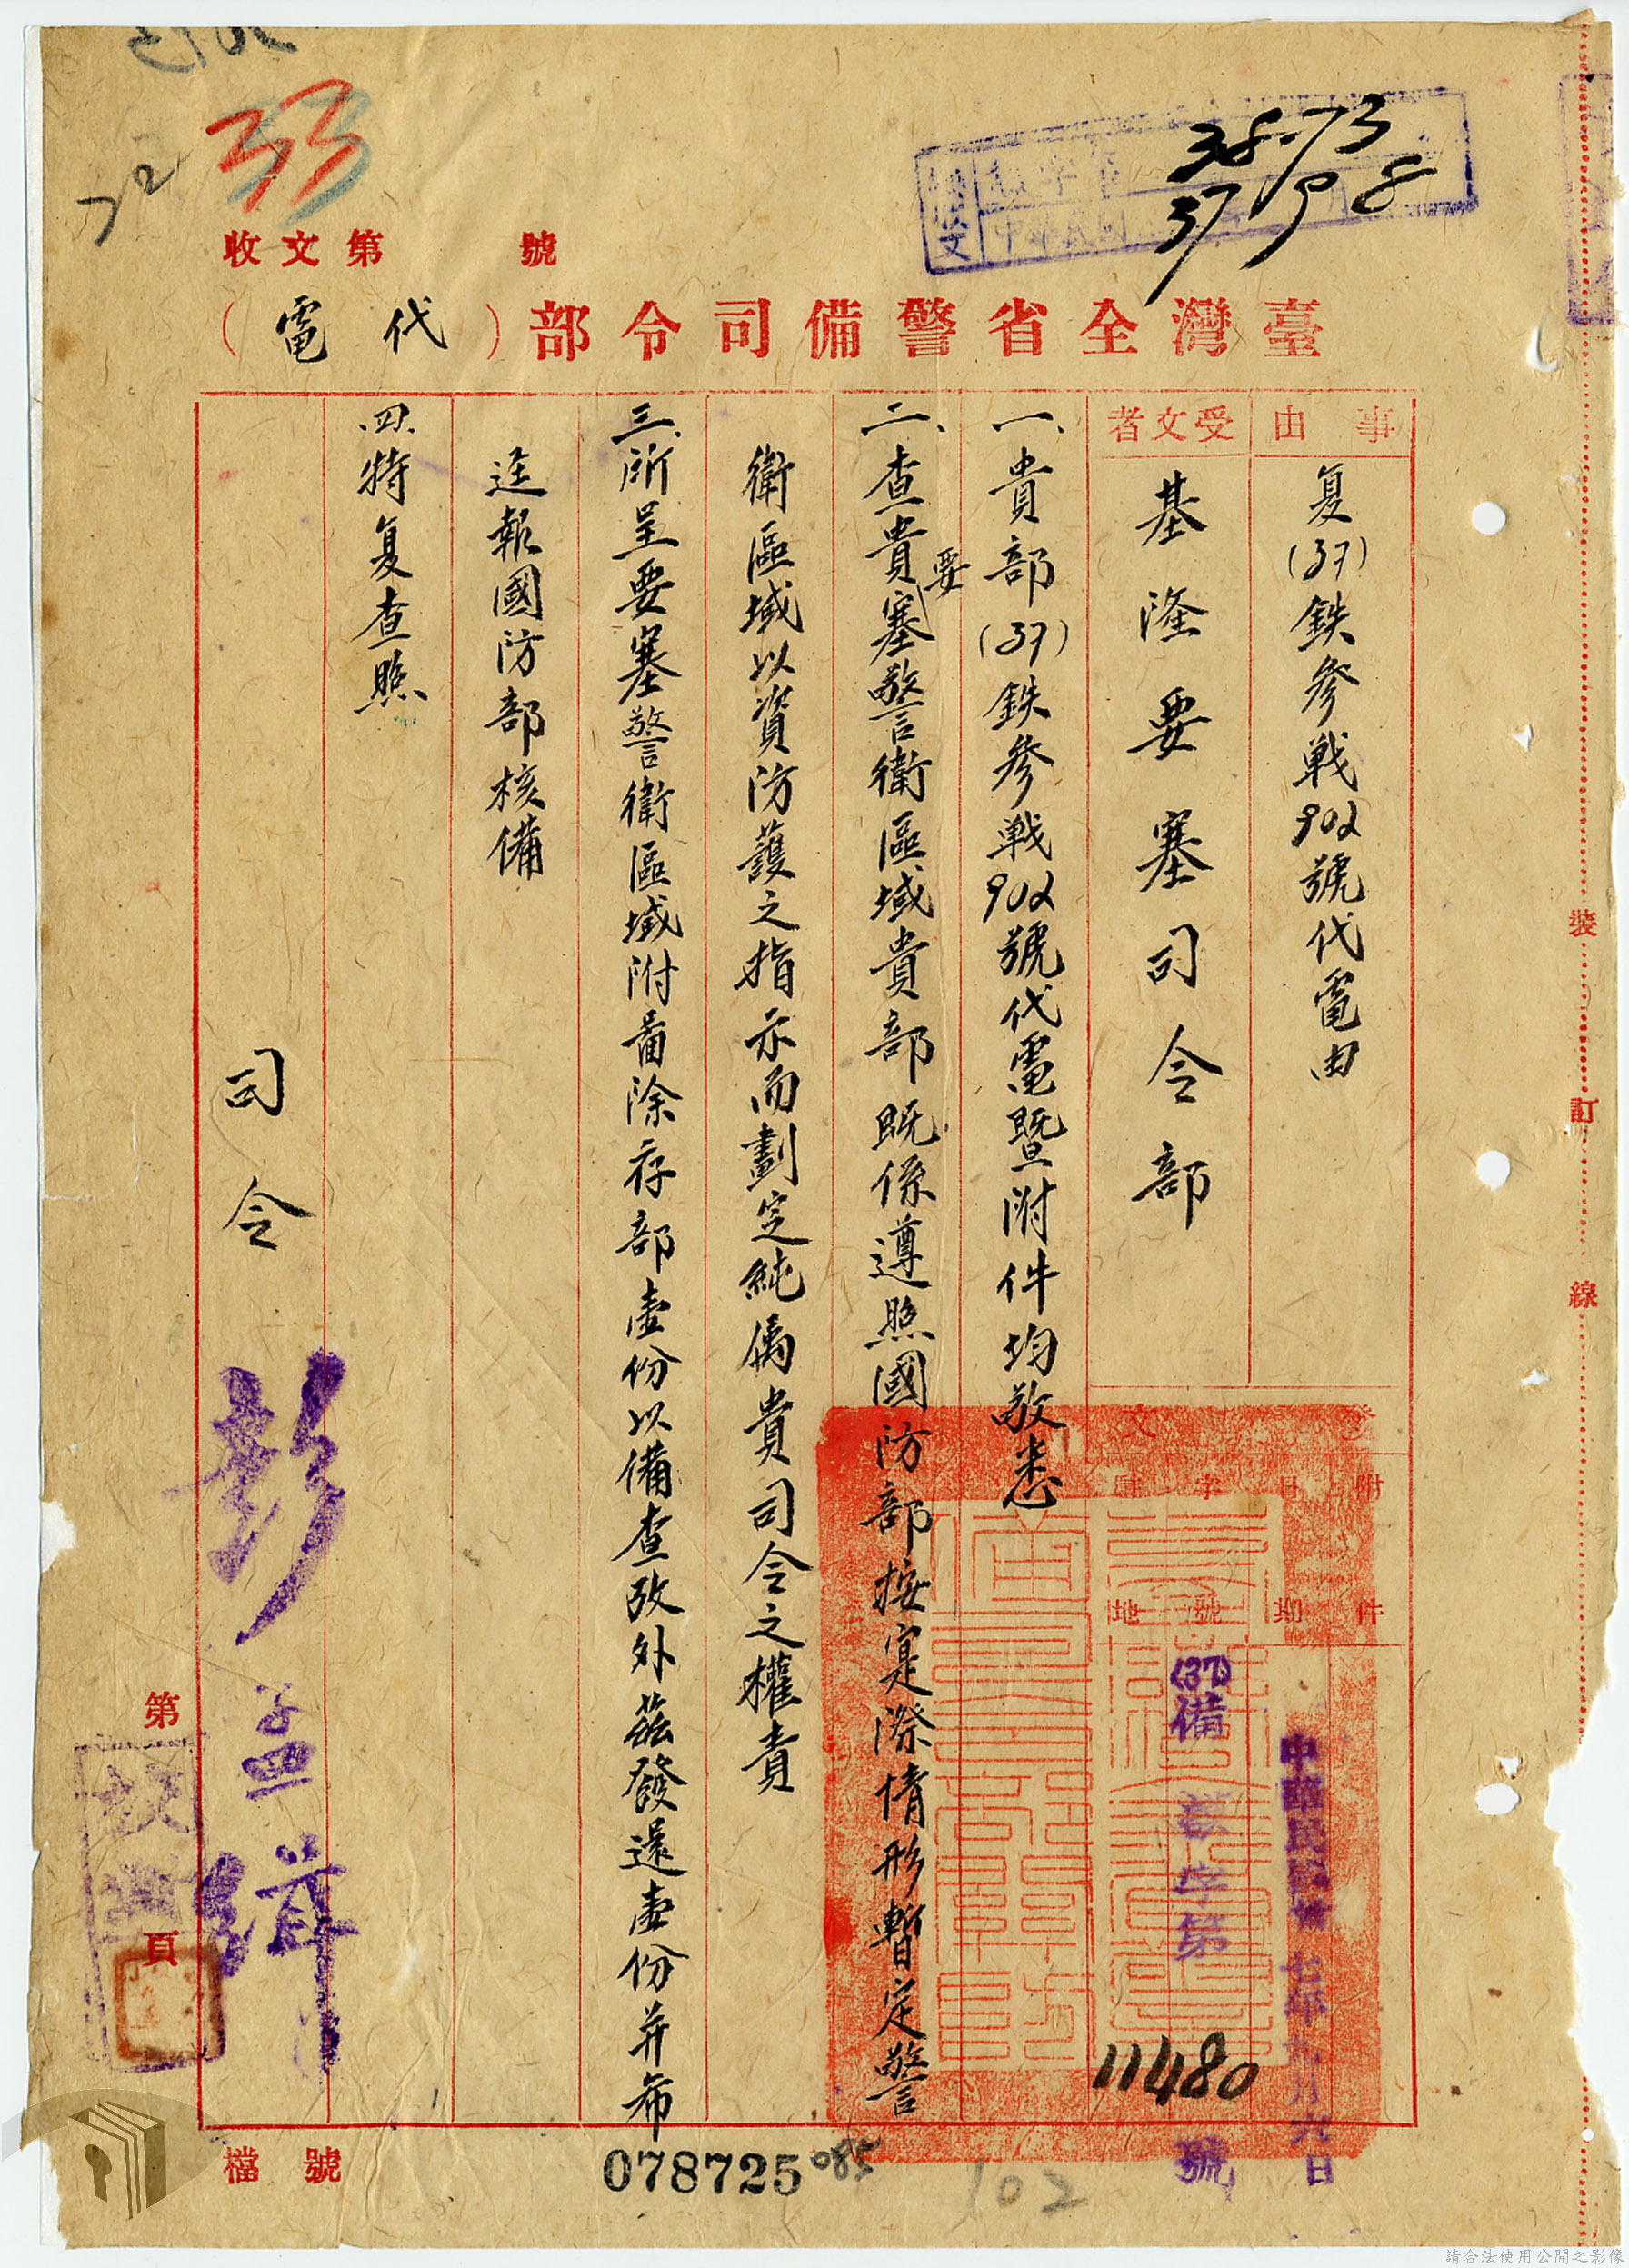 33
72
收文第　　號
38-73
37 9 8
臺灣全省警備司令部（代電）
事由
复(37)鉄參戰902號代電由
受文者
基隆要塞司令部
附件
日期
字號
中華民國卅七年九月六日
(37)備　字第11480號
一、貴部(37)鉄參戰902號代電暨附件均敬悉
二、查貴要塞警衛區域貴部既係遵照國防部按寔際情形暫定警
衛區域以資防護之指示而劃定純属貴司令之權責
三、所呈要塞警衛區域附啚除存部壹份以備查攷外茲發還壹份并希
逕報國防部核備
四、特复查照
司令 彭孟緝
第　頁
檔號
078725
085
102
裝訂線
請合法使用公開之影像